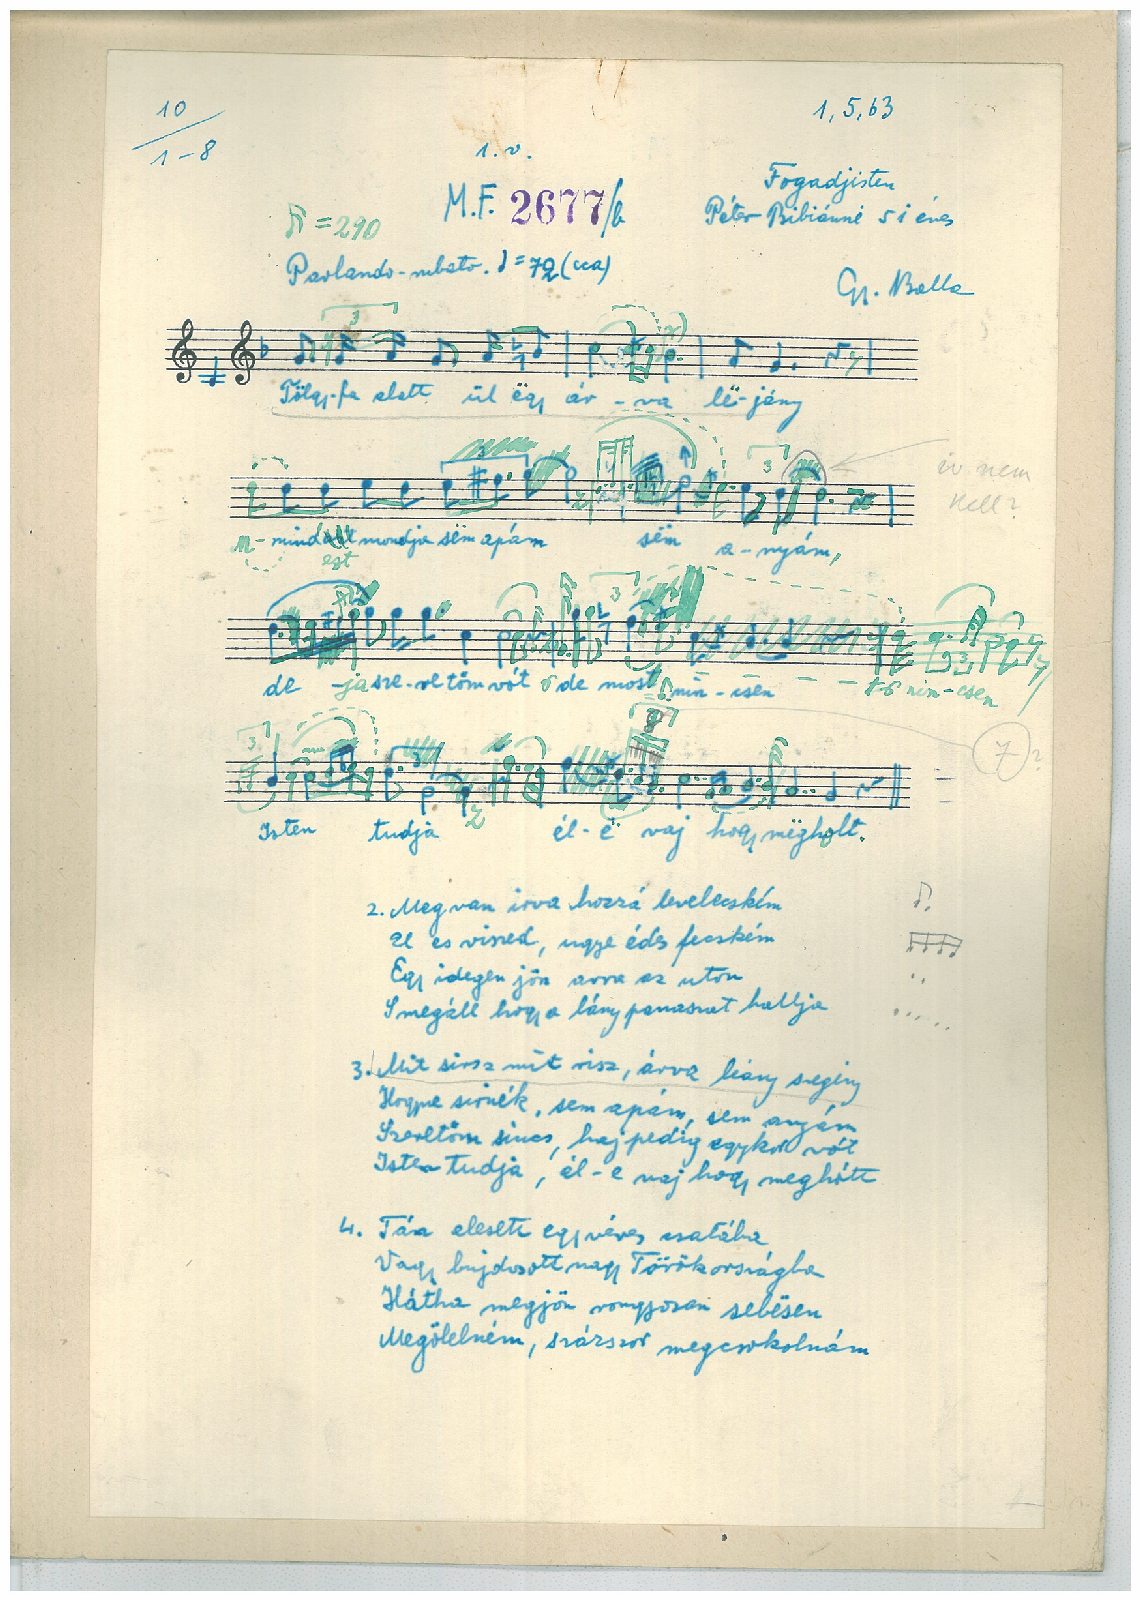 10
1-8
1,5,63
1. v.
M.F. 2677/b
Fogadjisten
Péter Bibiánné 51 éves
=290
Parlando-rubato. =72 (cca)
Gy. Balla
3
Tölgy-fa alatt ül ëgy ár-va lë-jány
3
3
ív nem
kell?
M-mind mondja sëm apám sëm a-nyám,
ezt
3
de -ja sze-re-töm vót de most nin-csen nin-csen
3
3
7?
Isten tudja él-ë vaj hogy mëgholt.
2. Meg van irva hozzá levelecském
El es viszed, ugye édes fecském
Egy idegen jön arra az uton
S megáll hogy a lány panaszat hallja
3. Mit sirsz mit risz, árva leány szegény
Hogyne sirnék, sem apám, sem anyám
Szeretöm sincs, haj pedig egykor vót
Isten tudja, él-e vaj hogy meghótt
4. Tán elesett egy véres csatába
Vagy bujdosott nagy Törökországba
Hátha megjön rongyosan sebësen
Megölelném, százszor megcsokolnám